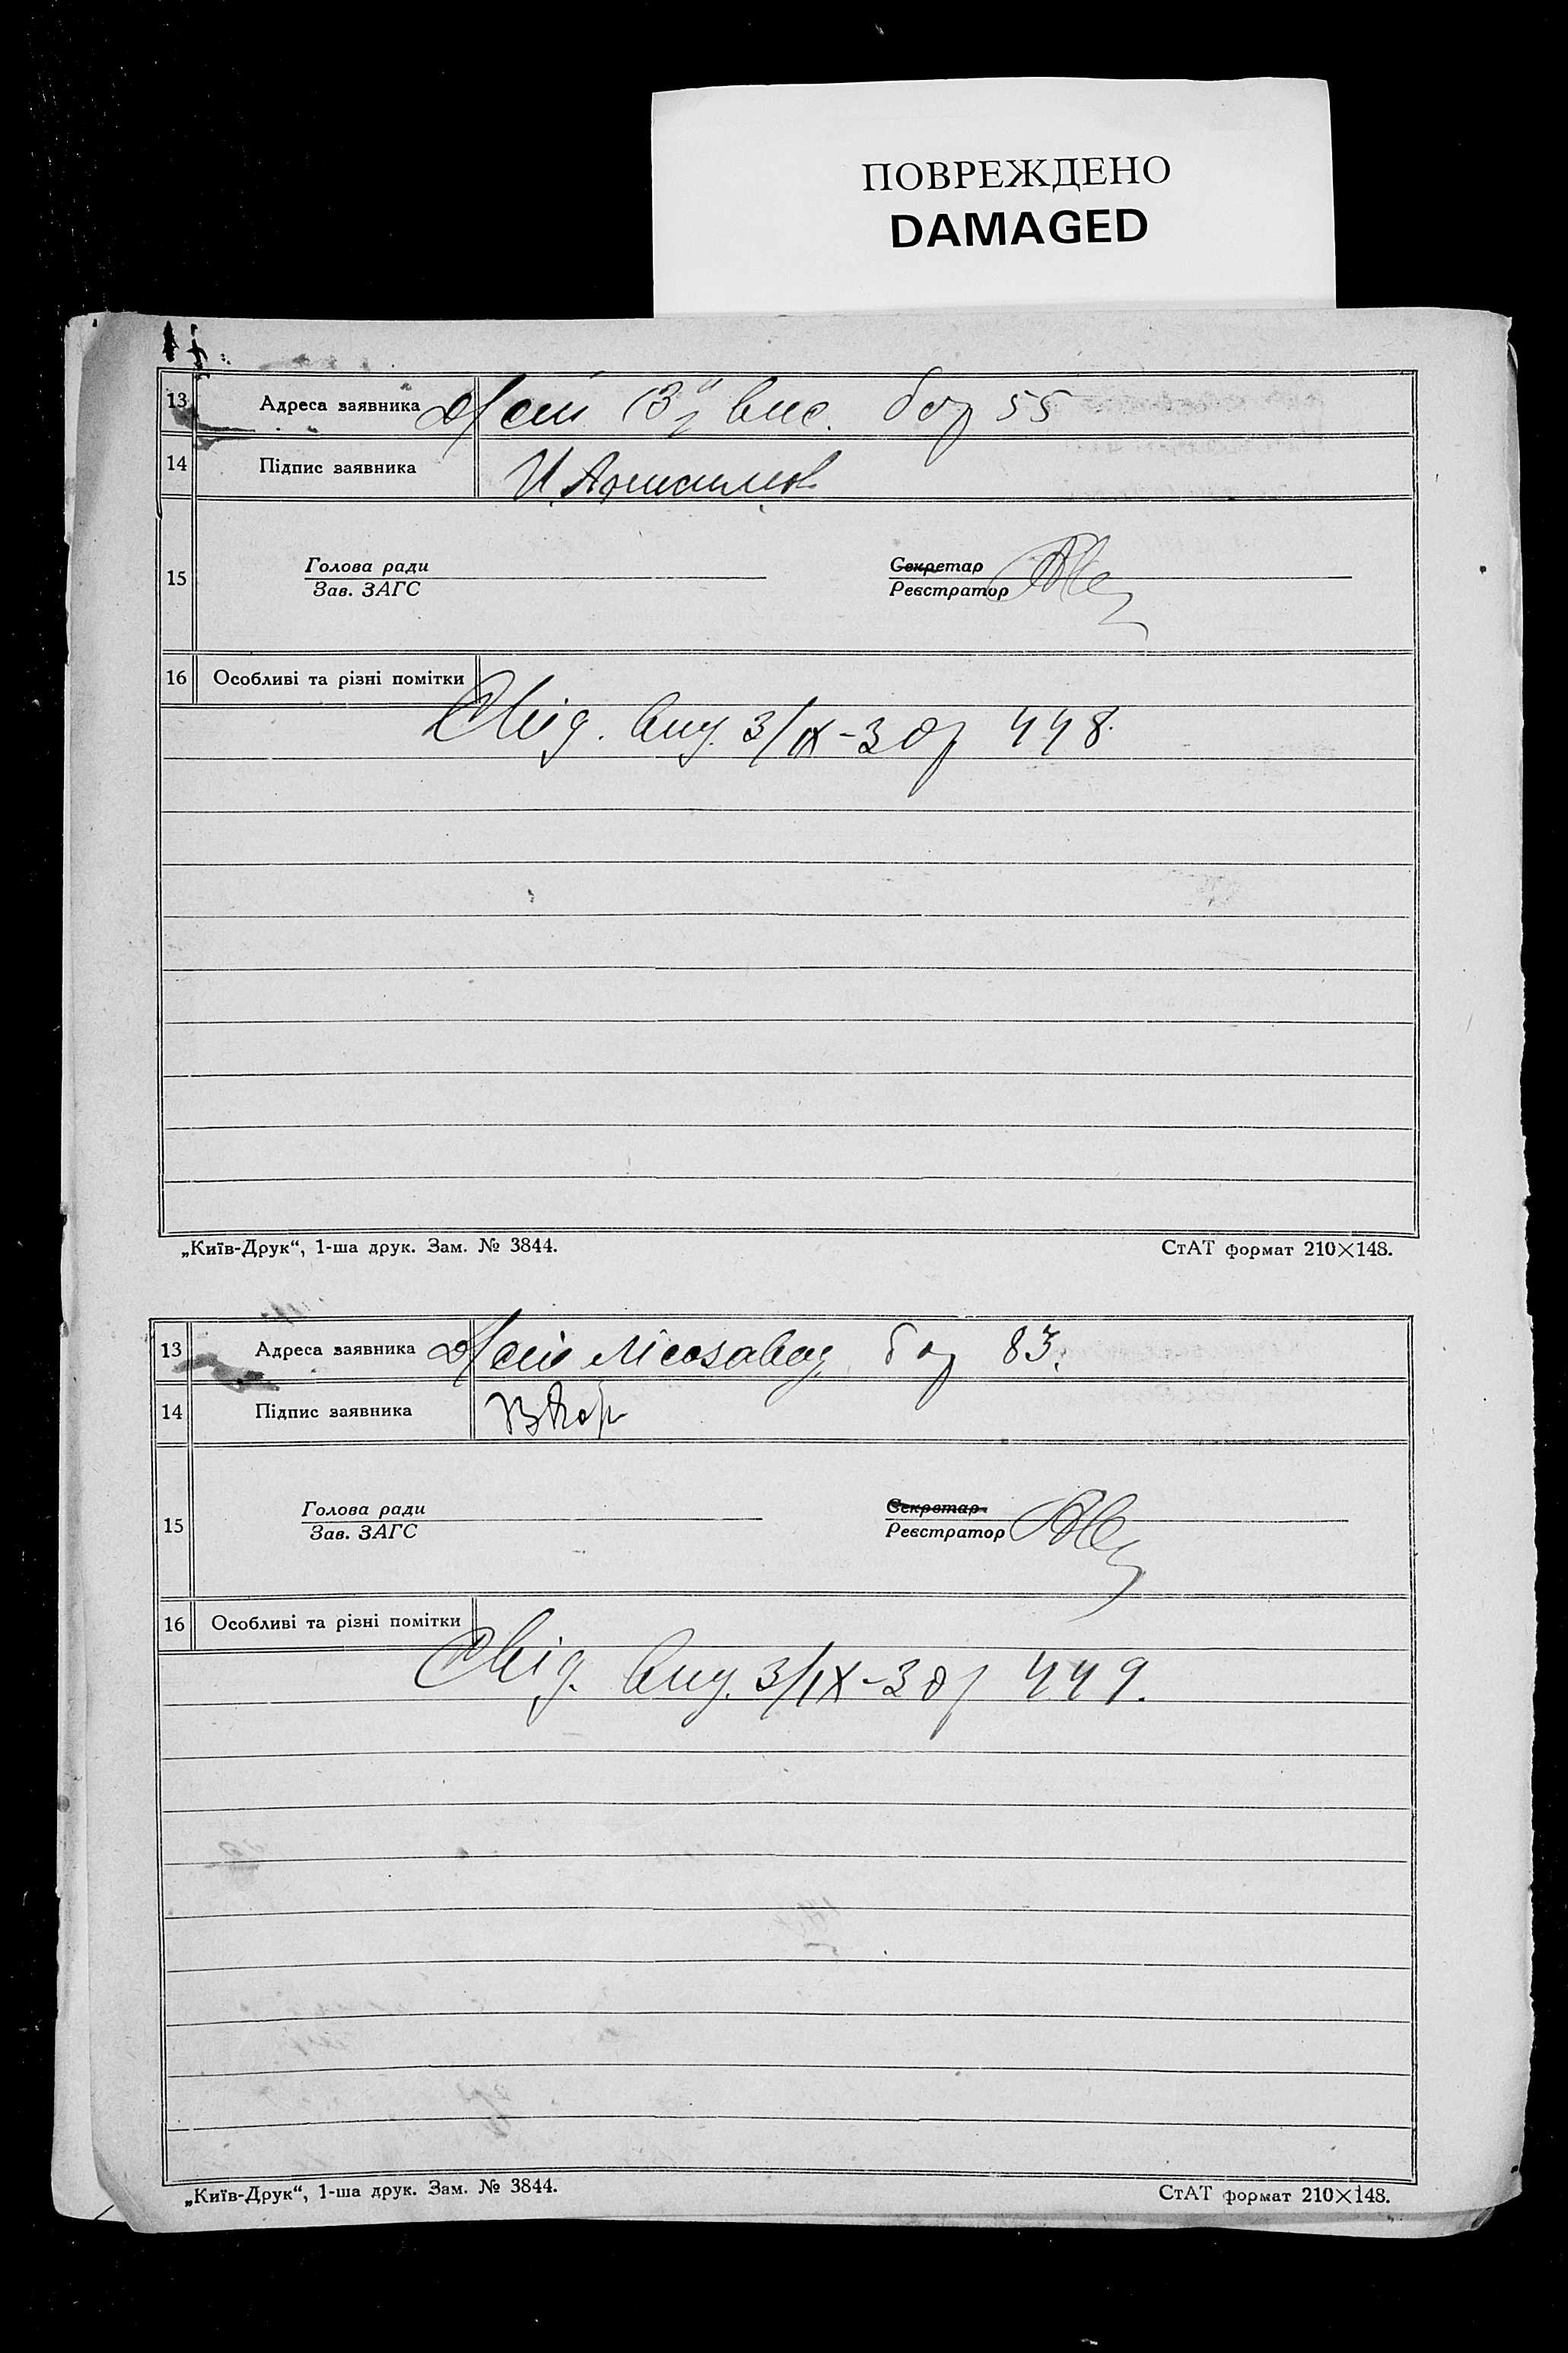 ПОВРЕЖДЕНО
DAMAGED
13 Адреса заявника 55
14 Підпис заявника И. Анисимов
15 Голова ради Секретар
Зав. ЗАГС Реєстратор
16 Особливі та різні помітки
Свід. вид. 3/ІХ-30р 448.
„Київ-Друк“, 1-ша друк. Зам. № 3844. СтАТ формат 210×148.
13 Адреса заявника Лісозавод 83.
14 Підпис заявника
15 Голова ради Секретар
Зав. ЗАГС Реєстратор
16 Особливі та різні помітки
Свід. вид. 3/ІХ-30р 449.
„Київ-Друк“, 1-ша друк. Зам. № 3844. СтАТ формат 210×148.